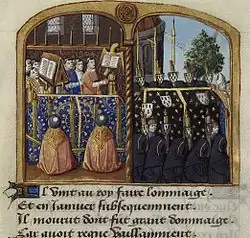 Il vint au roy faire lommaige.
Et en Januier subsequemment.
Il mourut dont fut grant dommaige.
Car auoit regne vaillamment.